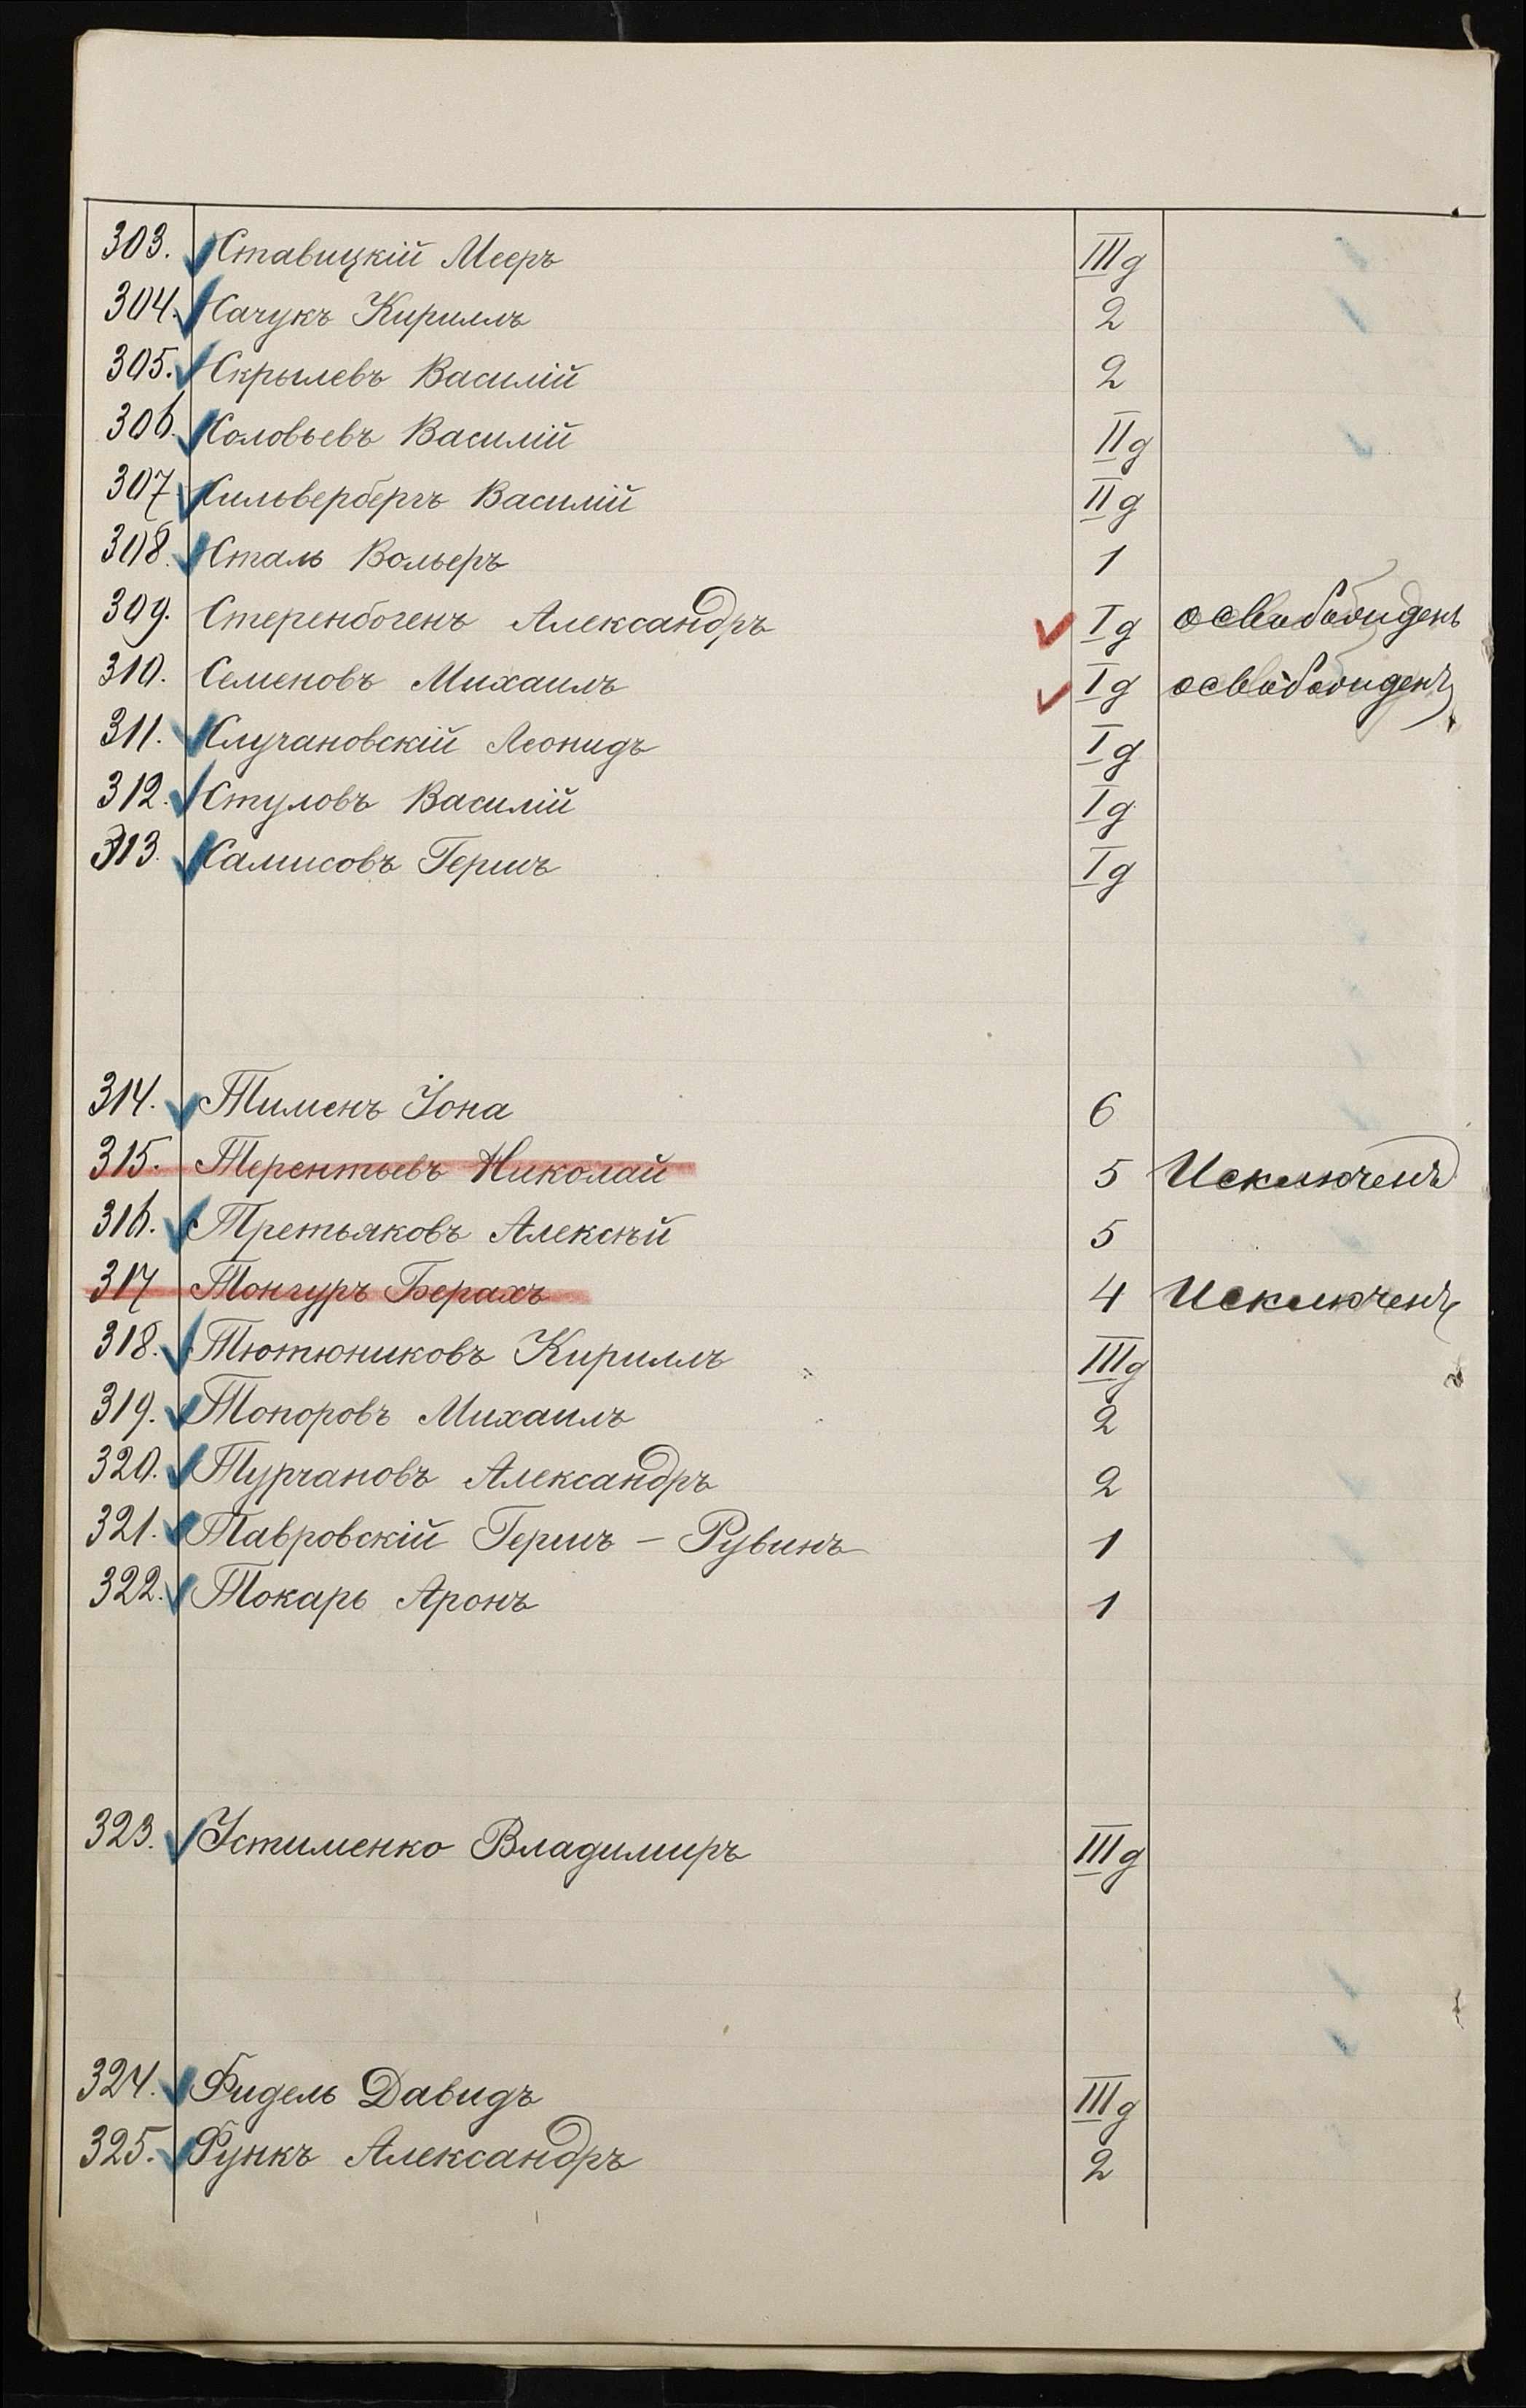 303. Ставицкій Мееръ IIIд
304. Сачукъ Кириллъ 2
305. Скрылевъ Василій 2
306. Соловьевъ Василій IIд
307 Сильвербергъ Василій IIд
308. Сталь Вольеръ 1
309. Стеренбогенъ Александръ Iд освобожденъ
310. Семеновъ Михаилъ Iд освобожденъ
311. Случановскій Леонидъ Iд
312. Стуловъ Василій Iд
313. Самисовъ Гершъ Iд
314. Тименъ Іона 6
315. Терентьевъ Николай 5 Исключенъ
316. Третьяковъ Алексѣй 5
317 Тонгуръ Берахъ 4 Исключенъ
318. Тютюниковъ Кириллъ IIIд
319. Топоровъ Михаилъ 2
320. Турчановъ Александръ 2
321. Тавровскій Гершъ – Рувинъ 1
322. Токарь Аронъ 1
323. Устименко Владимиръ IIIд
324. Фидель Давидъ IIIд
325. Функъ Александръ 2